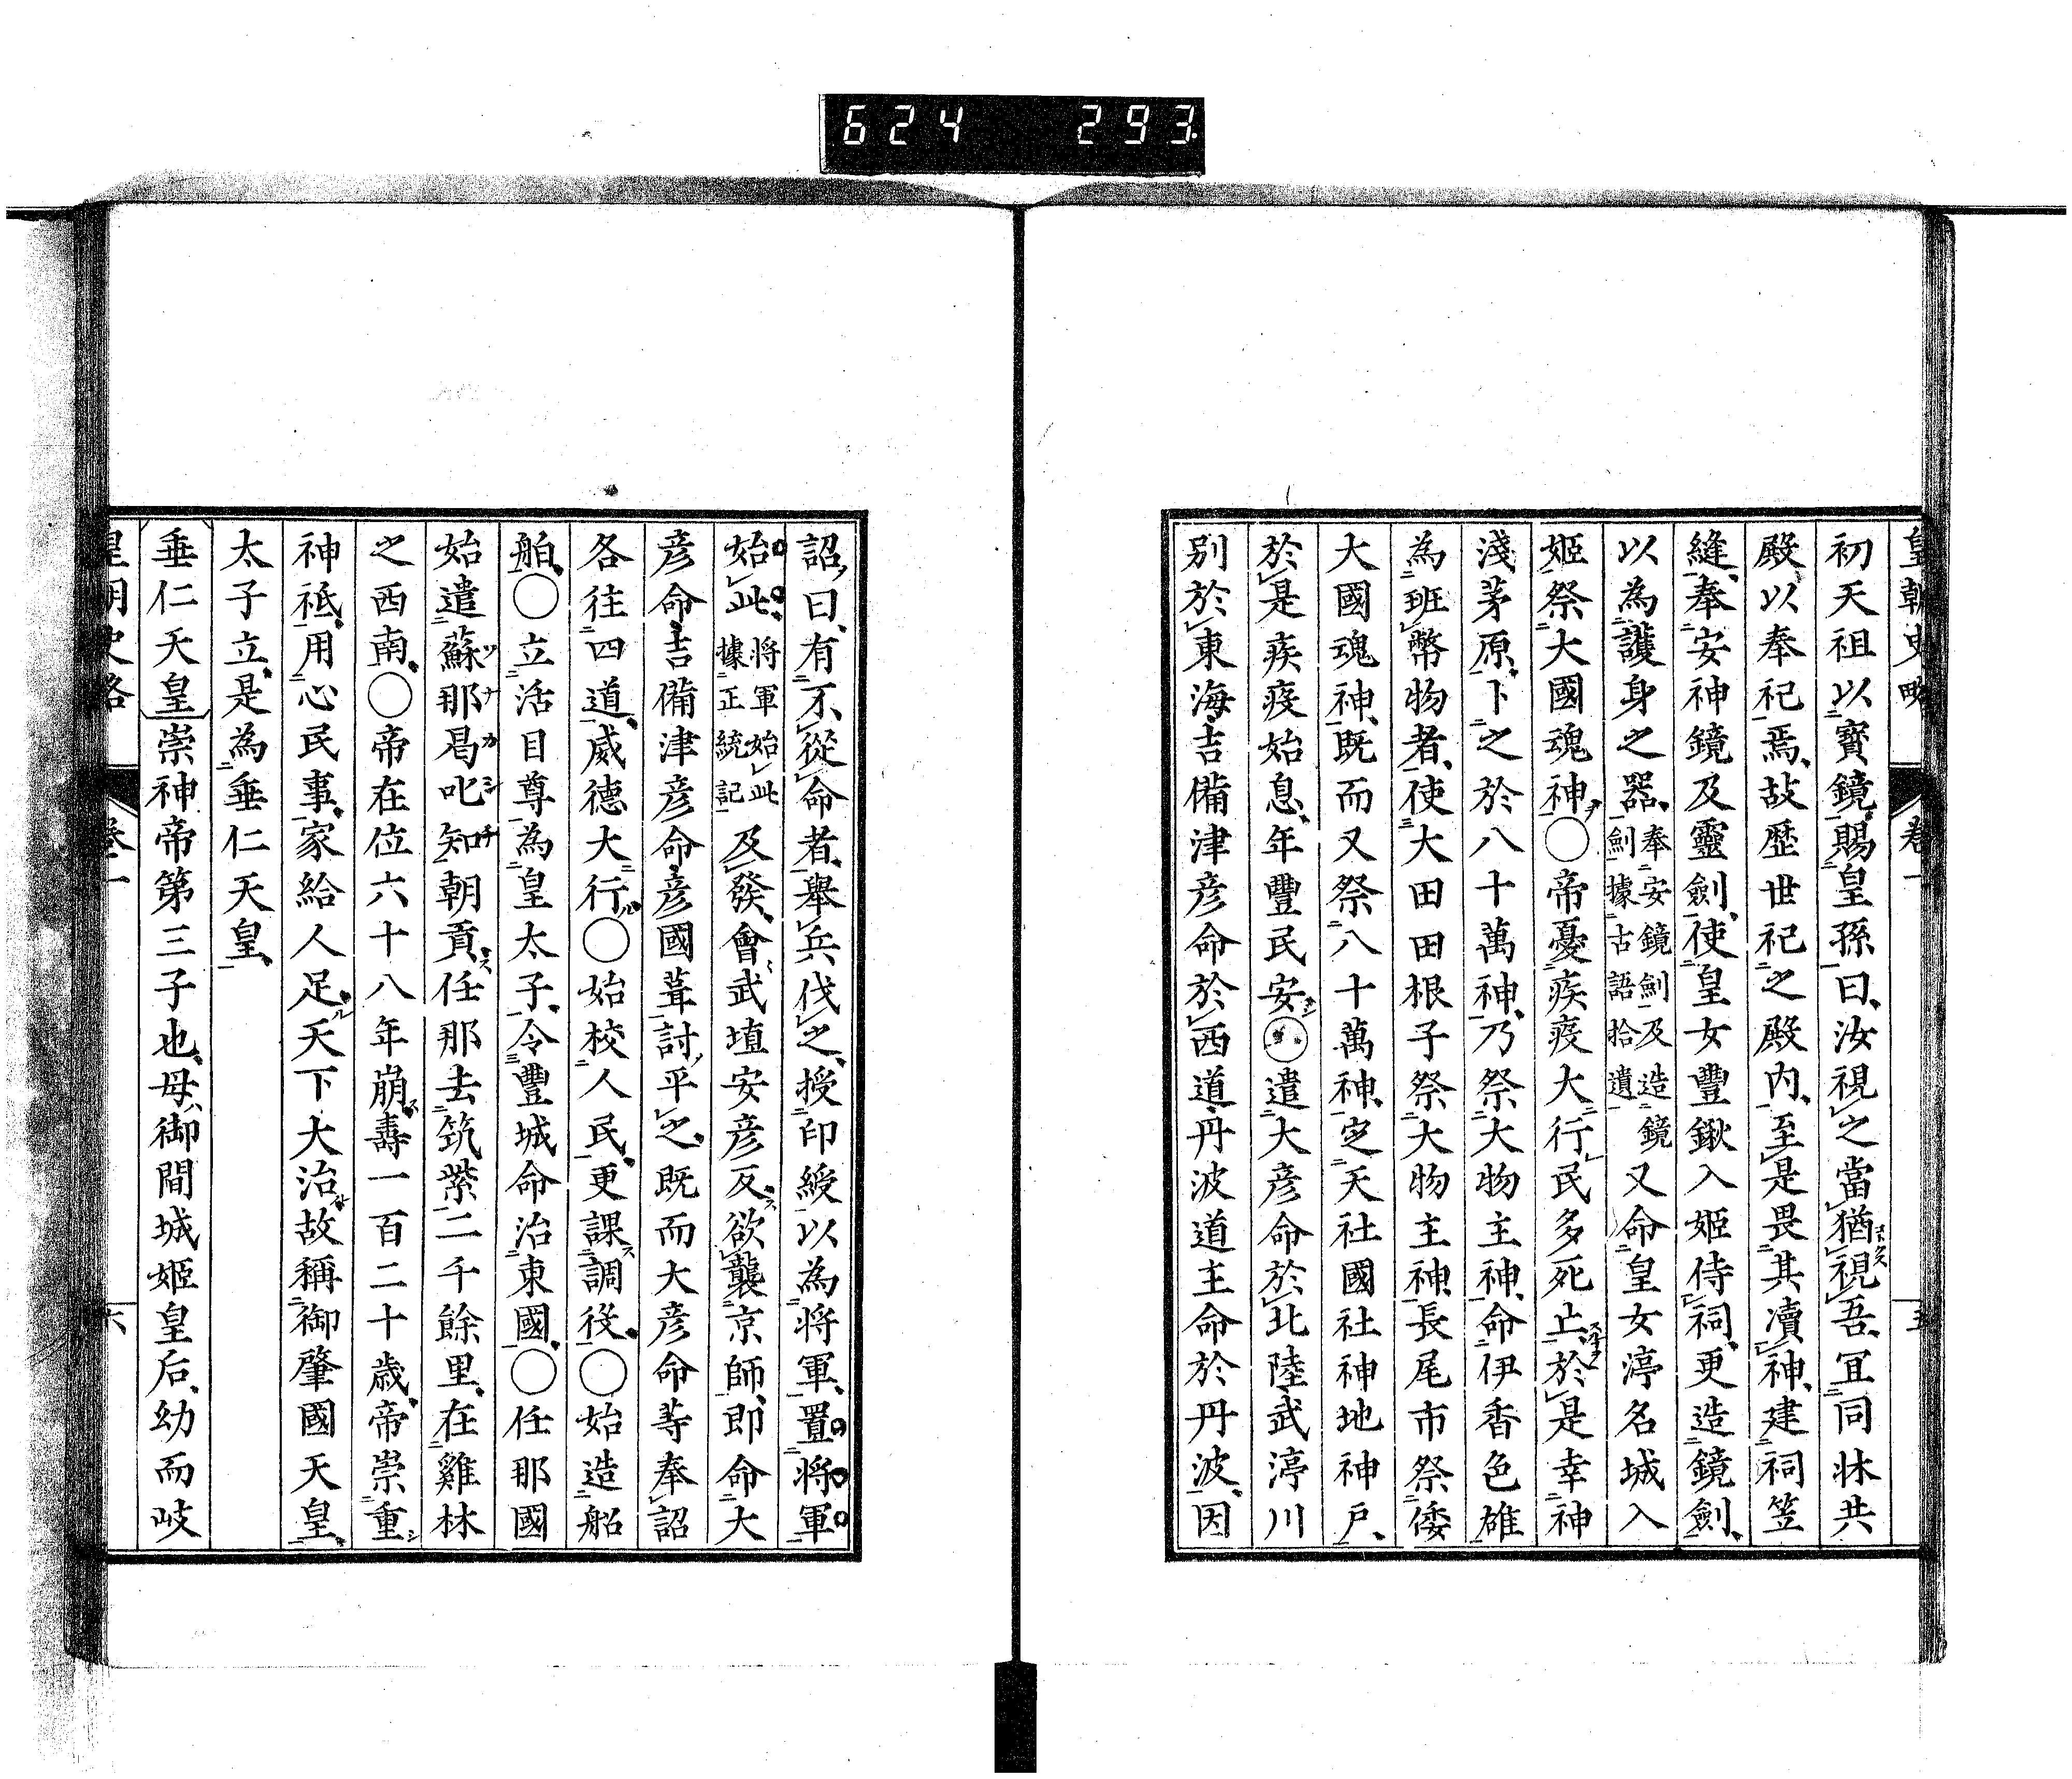 624 293
皇朝史略 卷一 五
初天祖以寶鏡賜皇孫曰、汝視之當猶視吾、宜同牀共
殿以奉祀焉、故歷世祀之殿内、至是畏其瀆神、建祠笠
縫、奉安神鏡及靈劍、使皇女豐鍬入姬侍祠、更造鏡劍、
以為護身之器、奉安鏡劍及造鏡劍據古語拾遺又命皇女渟名城入
姬祭大國魂神○帝憂疾疫大行民多死亡、於是幸神
淺茅原、卜之於八十萬神、乃祭大物主神、命伊香色雄
為班幣物者、使大田田根子祭大物主神、長尾市祭倭
大國魂神、既而又祭八十萬神、定天社國社神地神戶、
於是疾疫始息、年豐民安○遣大彦命於北陸、武渟川
別於東海、吉備津彦命於西道、丹波道主命於丹波、因
詔曰、有不從命者、舉兵伐之、授印綬以為將軍、置將軍
始此、將軍始此據正統記及發、會武埴安彦反、欲襲京師、即命大
彦命、吉備津彦命、彦國葺討平之、既而大彦命等奉詔
各往四道、威德大行○始校人民、更課調役、○始造船
舶、○立活目尊為皇太子、令豐城命治東國、○任那國
始遣蘇那曷叱知朝貢、任那去筑紫二千餘里、在雞林
之西南、○帝在位六十八年崩、壽一百二十歲、帝崇重
神祇、用心民事、家給人足、天下大治、故稱御肇國天皇、
太子立、是為垂仁天皇、
垂仁天皇 崇神帝第三子也、母、御間城姬皇后、幼而岐
皇朝史略 卷一 六